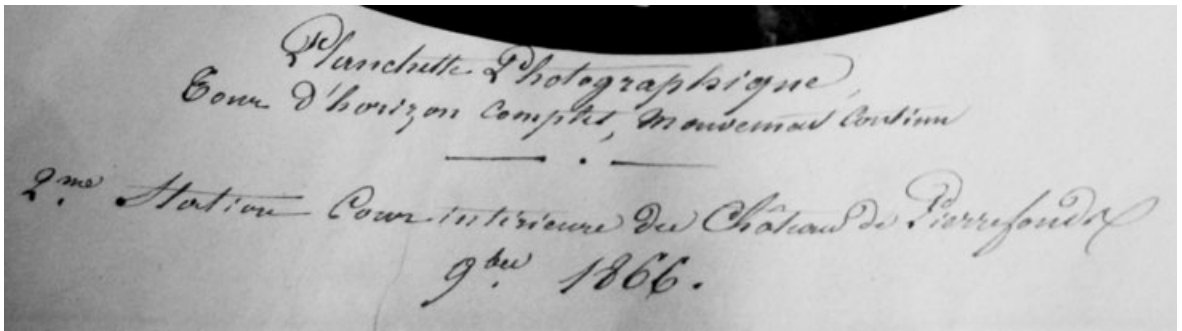 Planchette Photographique,
Tour d'horizon complet, Mouvement Continu
2.me Station Cour intérieure du Château de Pierrefonds
9.bre 1866.